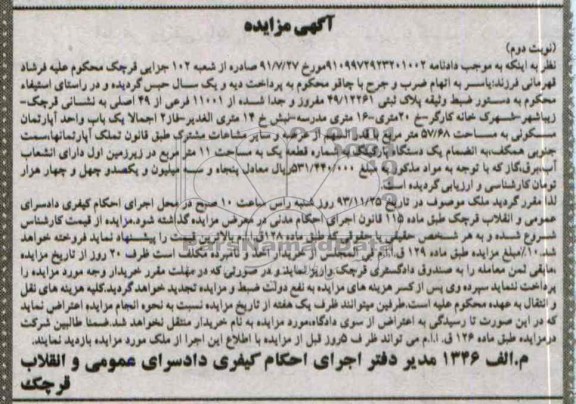 آگهی مزایده
(نوبت دوم)
نظر به اینکه به موجب دادنامه ۹۱۰۹۹۷۲۹۲۳۲۰۱۰۰۲ مورخ ۹۱/۷/۲۷ صادره از شعبه ۱۰۲ جزایی قرچک محکوم علیه فرشاد
قهرمانی فرزند:یاسر به اتهام ضرب و جرح با چاقو محکوم به پرداخت دیه و یک سال حبس گردیده و در راستای استیفاء
محکوم به دستور ضبط وثیقه پلاک ثبتی ۴۹/۱۲۲۶۱ مفروز و جدا شده از ۱۱۰۰۱ فرعی از ۴۹ اصلی به نشانی قرچک-
زیباشهر-شهرک خانه کارگر-خ ۲۰متری-۱۶ متری مدرسه-نبش خ ۱۴ متری الغدیر-فاز۲ اجمالا یک باب واحد آپارتمان
مسکونی به مساحت ۵۷/۶۸ متر مربع با قدرالسهم از عرصه و سایر مشاعات مشترک طبق قانون تملک آپارتمانها،سمت
جنوبی همکف،به انضمام یک دستگاه پارکینگ به شماره قطعه یک به مساحت ۱۱ متر مربع در زیرزمین اول دارای انشعاب
آب،برق،گاز که با توجه به مواد مذکور به مبلغ ۵۳۱/۲۴۰/۰۰۰ریال معادل پنجاه و سه میلیون و یکصدو چهل و چهار هزار
تومان کارشناسی و ارزیابی گردیده است.
لذا مقرر گردید ملک موصوف در تاریخ ۹۳/۱۱/۲۵ روز شنبه راس ساعت ۱۰ صبح در محل اجرای احکام کیفری دادسرای
عمومی و انقلاب قرچک طبق ماده ۱۱۵ قانون اجرای احکام مدنی در معرض مزایده گذاشته شود.مزایده از قیمت کارشناس
شروع شده و به هر شخص حقیقی یا حقوقی که طبق ماده ۱۲۸ ق.ا.م بالاترین قیمت را پیشنهاد نماید فروخته خواهد
۱۰٪مبلغ مزایده طبق ماده ۱۲۹ ق.ا.م فی المجلس از خریدار اخذ و برنده مکلف است ظرف ۲۰ روز از تاریخ مزایده
مابقی ثمن معامله را به صندوق دادگستری قرچک واریز نماید و در صورتی که در مهلت مقرر خریدار وجه مورد مزایده را
پرداخت ننماید سپرده وی پس از کسر هزینه های مزایده به نفع دولت ضبط و مزایده تجدید خواهد گردید.کلیه هزینه های نقل
و انتقال به عهده محکوم علیه است.طرفین میتوانند ظرف یک هفته از تاریخ مزایده نسبت به نحوه انجام مزایده اعتراض نماید
که در این صورت تا رسیدگی به اعتراض از سوی دادگاه،مورد مزایده به نام خریدار منتقل نخواهد شد.ضمنا طالبین شرکت
درمزایده طبق ماده ۱۲۶ ق.ا.ام می تواند ظر ف ۵روز قبل از مزایده با اطلاع این اجرا از ملک مورد مزایده بازدید نمایند.
م.الف ۱۳۳۶ مدیر دفتر اجرای احکام کیفری دادسرای عمومی و انقلاب
قرچک